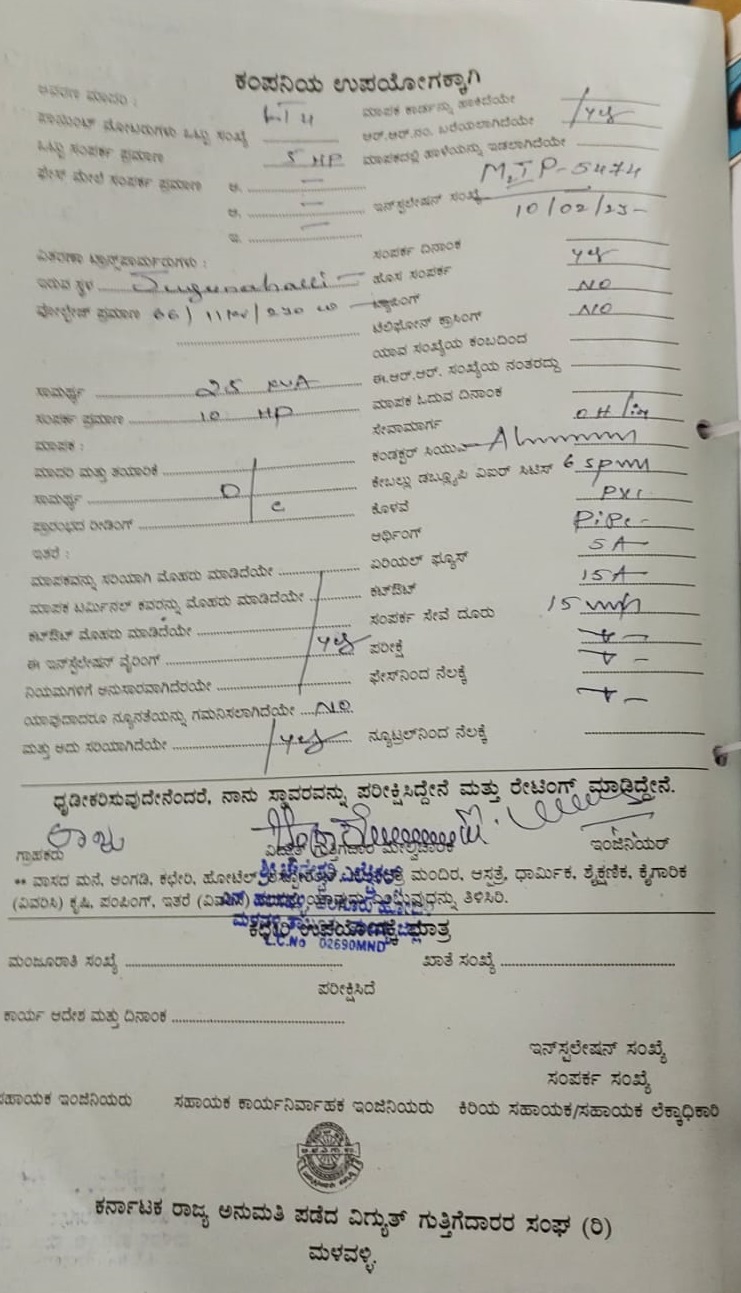 ಕಂಪನಿಯ ಉಪಯೋಗಕ್ಕಾಗಿ
ಆವರಣ ಮಾದರಿ : LT4 ಮಾಪಕ ಕಾರ್ಡನ್ನು ಹಾಕಿದೆಯೇ yes
ಪಾಯಿಂಟ್ ಮೋಟಾರುಗಳು ಒಟ್ಟು ಸಂಖ್ಯೆ ಆರ್.ಆರ್.ನಂ. ಬರೆಯಲಾಗಿದೆಯೇ
ಒಟ್ಟು ಸಂಪರ್ಕ ಪ್ರಮಾಣ 5 HP ಮಾಪಕದಲ್ಲಿ ಹಾಳೆಯನ್ನು ಇಡಲಾಗಿದೆಯೇ
ಫೇಸ್ ಮೇಲೆ ಸಂಪರ್ಕ ಪ್ರಮಾಣ ಅ. — MTP-5474
ಆ. — ಇನ್‌ಸ್ಟಲೇಷನ್ ಸಂಖ್ಯೆ 10/02/23
ಇ. —
ವಿತರಣಾ ಟ್ರಾನ್ಸ್‌ಫಾರ್ಮರುಗಳು : ಸಂಪರ್ಕ ದಿನಾಂಕ
ಇರುವ ಸ್ಥಳ ಹೊಸ ಸಂಪರ್ಕ yes
ವೋಲ್ಟೇಜ್ ಪ್ರಮಾಣ 66/11KV/230 ಟ್ಯಾಪಿಂಗ್ NO
ಟೆಲಿಫೋನ್ ಕ್ರಾಸಿಂಗ್ NO
ಯಾವ ಸಂಖ್ಯೆಯ ಕಂಬದಿಂದ
ಸಾಮರ್ಥ್ಯ 25 KVA ಈ.ಆರ್.ಆರ್. ಸಂಖ್ಯೆಯ ನಂತರದ್ದು
ಸಂಪರ್ಕ ಪ್ರಮಾಣ 10 HP ಮಾಪಕ ಓದುವ ದಿನಾಂಕ
ಮಾಪಕ : ಸೇವಾಮಾರ್ಗ OH/in
ಮಾದರಿ ಮತ್ತು ತಯಾರಿಕೆ ಕಂಡಕ್ಟರ್ ಸಿಯು
ಸಾಮರ್ಥ್ಯ D ಕೇಬಲ್ಲು ಡಬ್ಲ್ಯೂಪಿ ವಿಐಆರ್ ಸಿಟಿಸ್ 6
ಪ್ರಾರಂಭದ ರೀಡಿಂಗ್ C ಕೊಳವೆ
ಇತರೆ : ಅರ್ಥಿಂಗ್ Pipe -
ಮಾಪಕವನ್ನು ಸರಿಯಾಗಿ ಮೊಹರು ಮಾಡಿದೆಯೇ ಏರಿಯಲ್ ಫ್ಯೂಸ್ 5A
ಮಾಪಕ ಟರ್ಮಿನಲ್ ಕವರನ್ನು ಮೊಹರು ಮಾಡಿದೆಯೇ ಕಟ್‌ಔಟ್ 15A
ಕಟ್‌ಔಟ್ ಮೊಹರು ಮಾಡಿದೆಯೇ ಸಂಪರ್ಕ ಸೇವೆ ದೂರು 15
ಈ ಇನ್‌ಸ್ಟಲೇಷನ್ ವೈರಿಂಗ್ yes ಪರೀಕ್ಷೆ
ನಿಯಮಗಳಿಗೆ ಅನುಸಾರವಾಗಿದೆರಯೇ ಫೇಸ್‌ನಿಂದ ನೆಲಕ್ಕೆ
ಯಾವುದಾದರೂ ನ್ಯೂನತೆಯನ್ನು ಗಮನಿಸಲಾಗಿದೆಯೇ No.
ಮತ್ತು ಅದು ಸರಿಯಾಗಿದೆಯೇ yes ನ್ಯೂಟ್ರಲ್‌ನಿಂದ ನೆಲಕ್ಕೆ
ಧೃಡೀಕರಿಸುವುದೇನೆಂದರೆ, ನಾನು ಸ್ಥಾವರವನ್ನು ಪರೀಕ್ಷಿಸಿದ್ದೇನೆ ಮತ್ತು ರೇಟಿಂಗ್ ಮಾಡಿದ್ದೇನೆ.
ಗ್ರಾಹಕರು ವಿದ್ಯುತ್ ಗುತ್ತಿಗೆದಾರ ಮೇಲ್ವಿಚಾರಕ ಇಂಜಿನಿಯರ್
** ವಾಸದ ಮನೆ, ಅಂಗಡಿ, ಕಛೇರಿ, ಹೋಟೆಲ್ ಮಂದಿರ, ಆಸ್ಪತ್ರೆ, ಧಾರ್ಮಿಕ, ಶೈಕ್ಷಣಿಕ, ಕೈಗಾರಿಕ
(ವಿವರಿಸಿ) ಕೃಷಿ, ಪಂಪಿಂಗ್, ಇತರೆ ತಿಳಿಸಿರಿ.
ಕಛೇರಿ ಉಪಯೋಗಕ್ಕೆ ಮಾತ್ರ
L.C.No 02690MND
ಮಂಜೂರಾತಿ ಸಂಖ್ಯೆ ಖಾತೆ ಸಂಖ್ಯೆ
ಪರೀಕ್ಷಿಸಿದೆ
ಕಾರ್ಯ ಆದೇಶ ಮತ್ತು ದಿನಾಂಕ
ಇನ್‌ಸ್ಟಲೇಷನ್ ಸಂಖ್ಯೆ
ಸಂಪರ್ಕ ಸಂಖ್ಯೆ
ಸಹಾಯಕ ಇಂಜಿನಿಯರು ಸಹಾಯಕ ಕಾರ್ಯನಿರ್ವಾಹಕ ಇಂಜಿನಿಯರು ಕಿರಿಯ ಸಹಾಯಕ/ಸಹಾಯಕ ಲೆಕ್ಕಾಧಿಕಾರಿ
ಕರ್ನಾಟಕ ರಾಜ್ಯ ಅನುಮತಿ ಪಡೆದ ವಿದ್ಯುತ್ ಗುತ್ತಿಗೆದಾರರ ಸಂಘ (ರಿ)
ಮಳವಳ್ಳಿ.